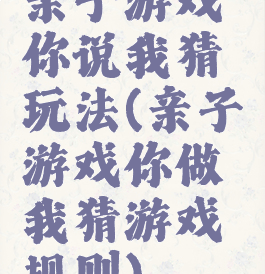 亲子游戏
你说我猜
玩法(亲子
游戏你做
我猜游戏
规则)